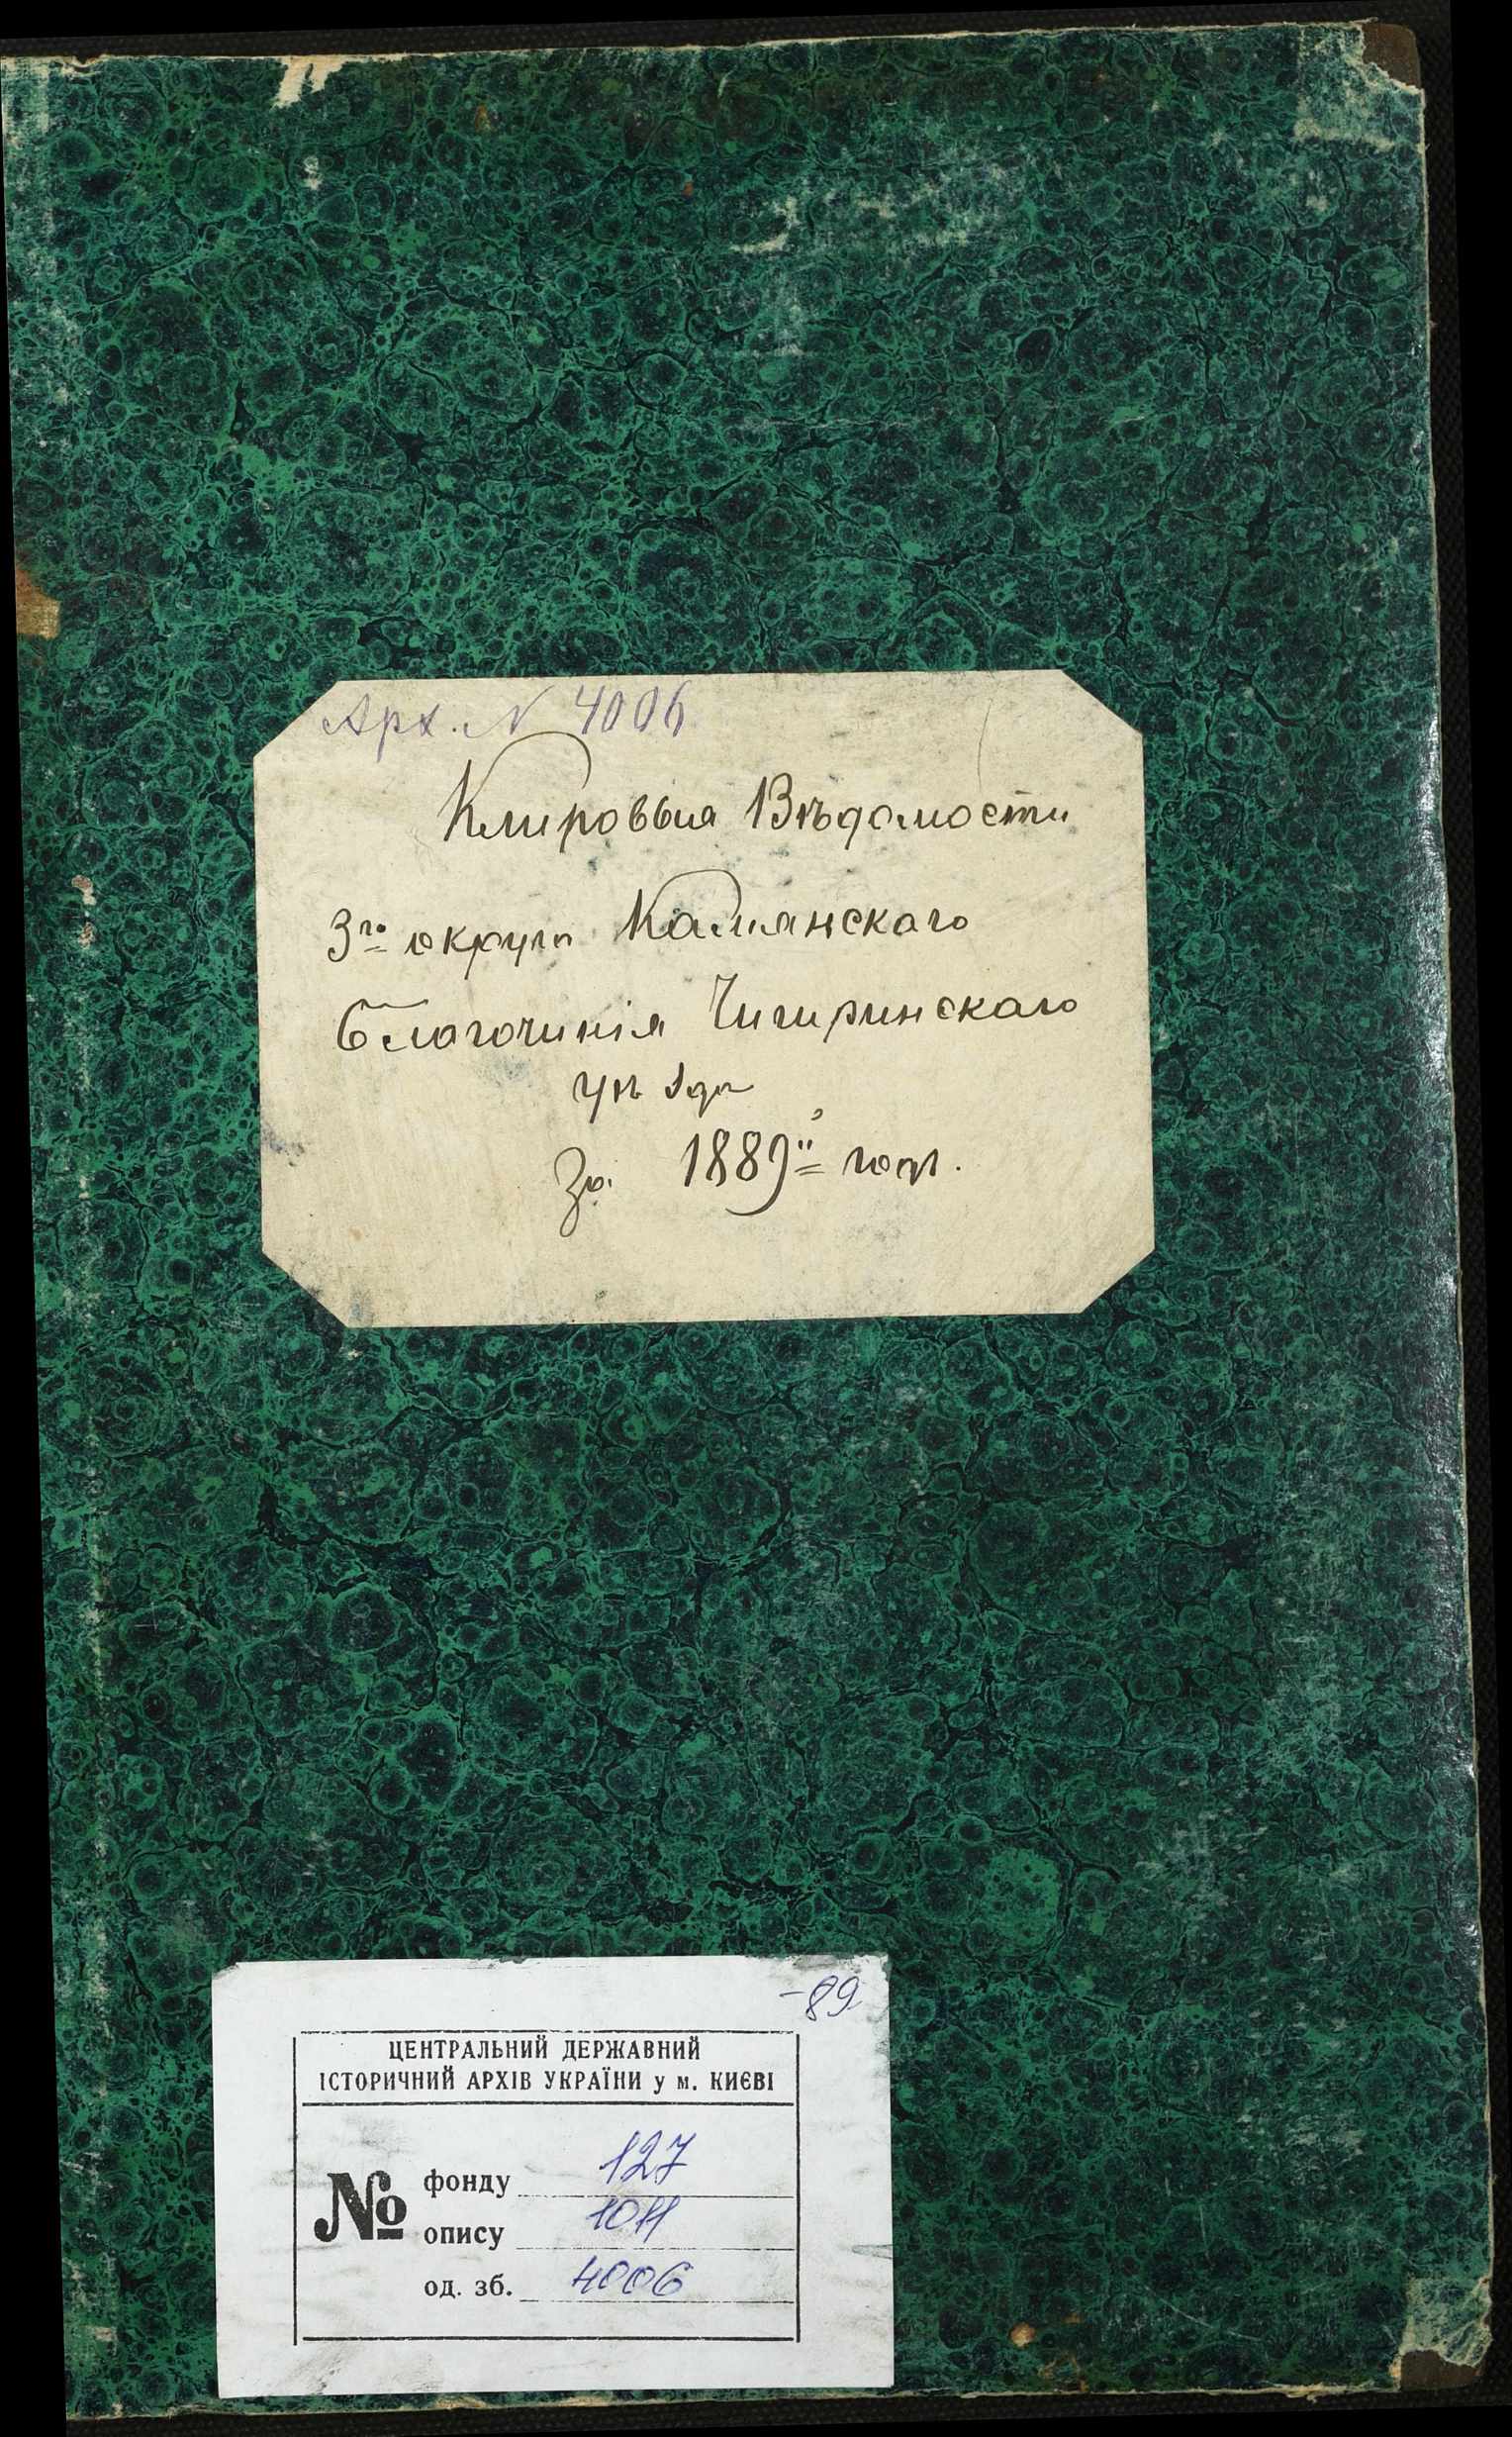 Арх. № 4006
Клировыя Вѣдомости
3го округа Камянскаго
Благочинія Чигиринскаго
уѣзда
За 1889й годъ.
-89
ЦЕНТРАЛЬНИЙ ДЕРЖАВНИЙ
ІСТОРИЧНИЙ АРХІВ УКРАЇНИ у м. КИЄВІ
№
фонду 127
опису 1011
од. зб. 4006